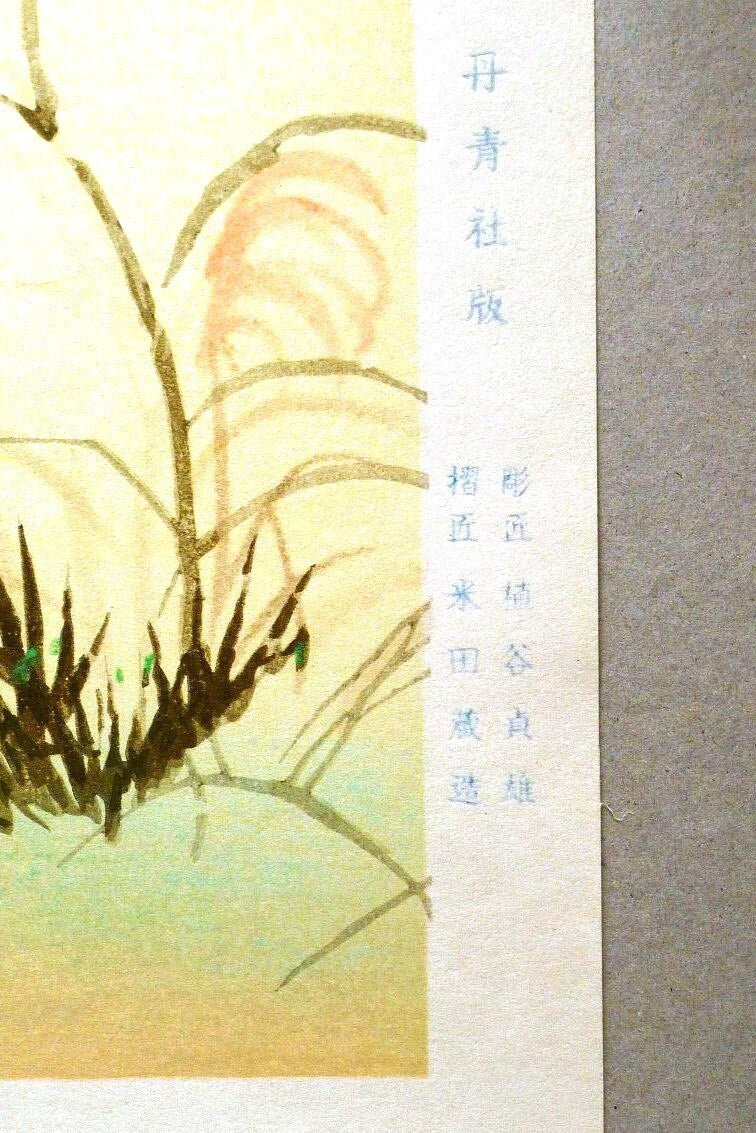 丹青社版
彫匠 埴谷貞雄
摺匠 米田蔵造